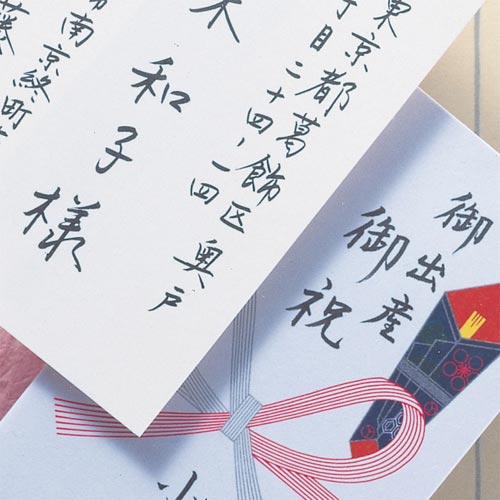 東京都葛飾区奥戸
丁目二十四ノ一四
木和子様
南京終町
御出産
御祝